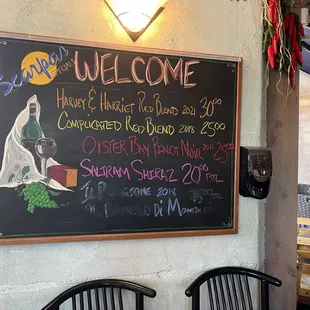 Scarpas
WELCOME
Harvey & Harriet Red Blend 2021 30.00
Complicated Red Blend 2018 25.00
Oyster Bay Pinot Noir 2021 25.00
Saltram Shiraz 20.00 BTL
Il Pr 2018
Di Mon